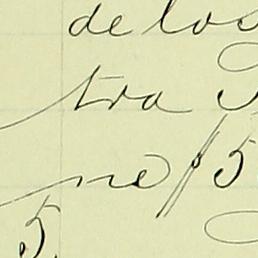 de los
tra
ne $5
5.